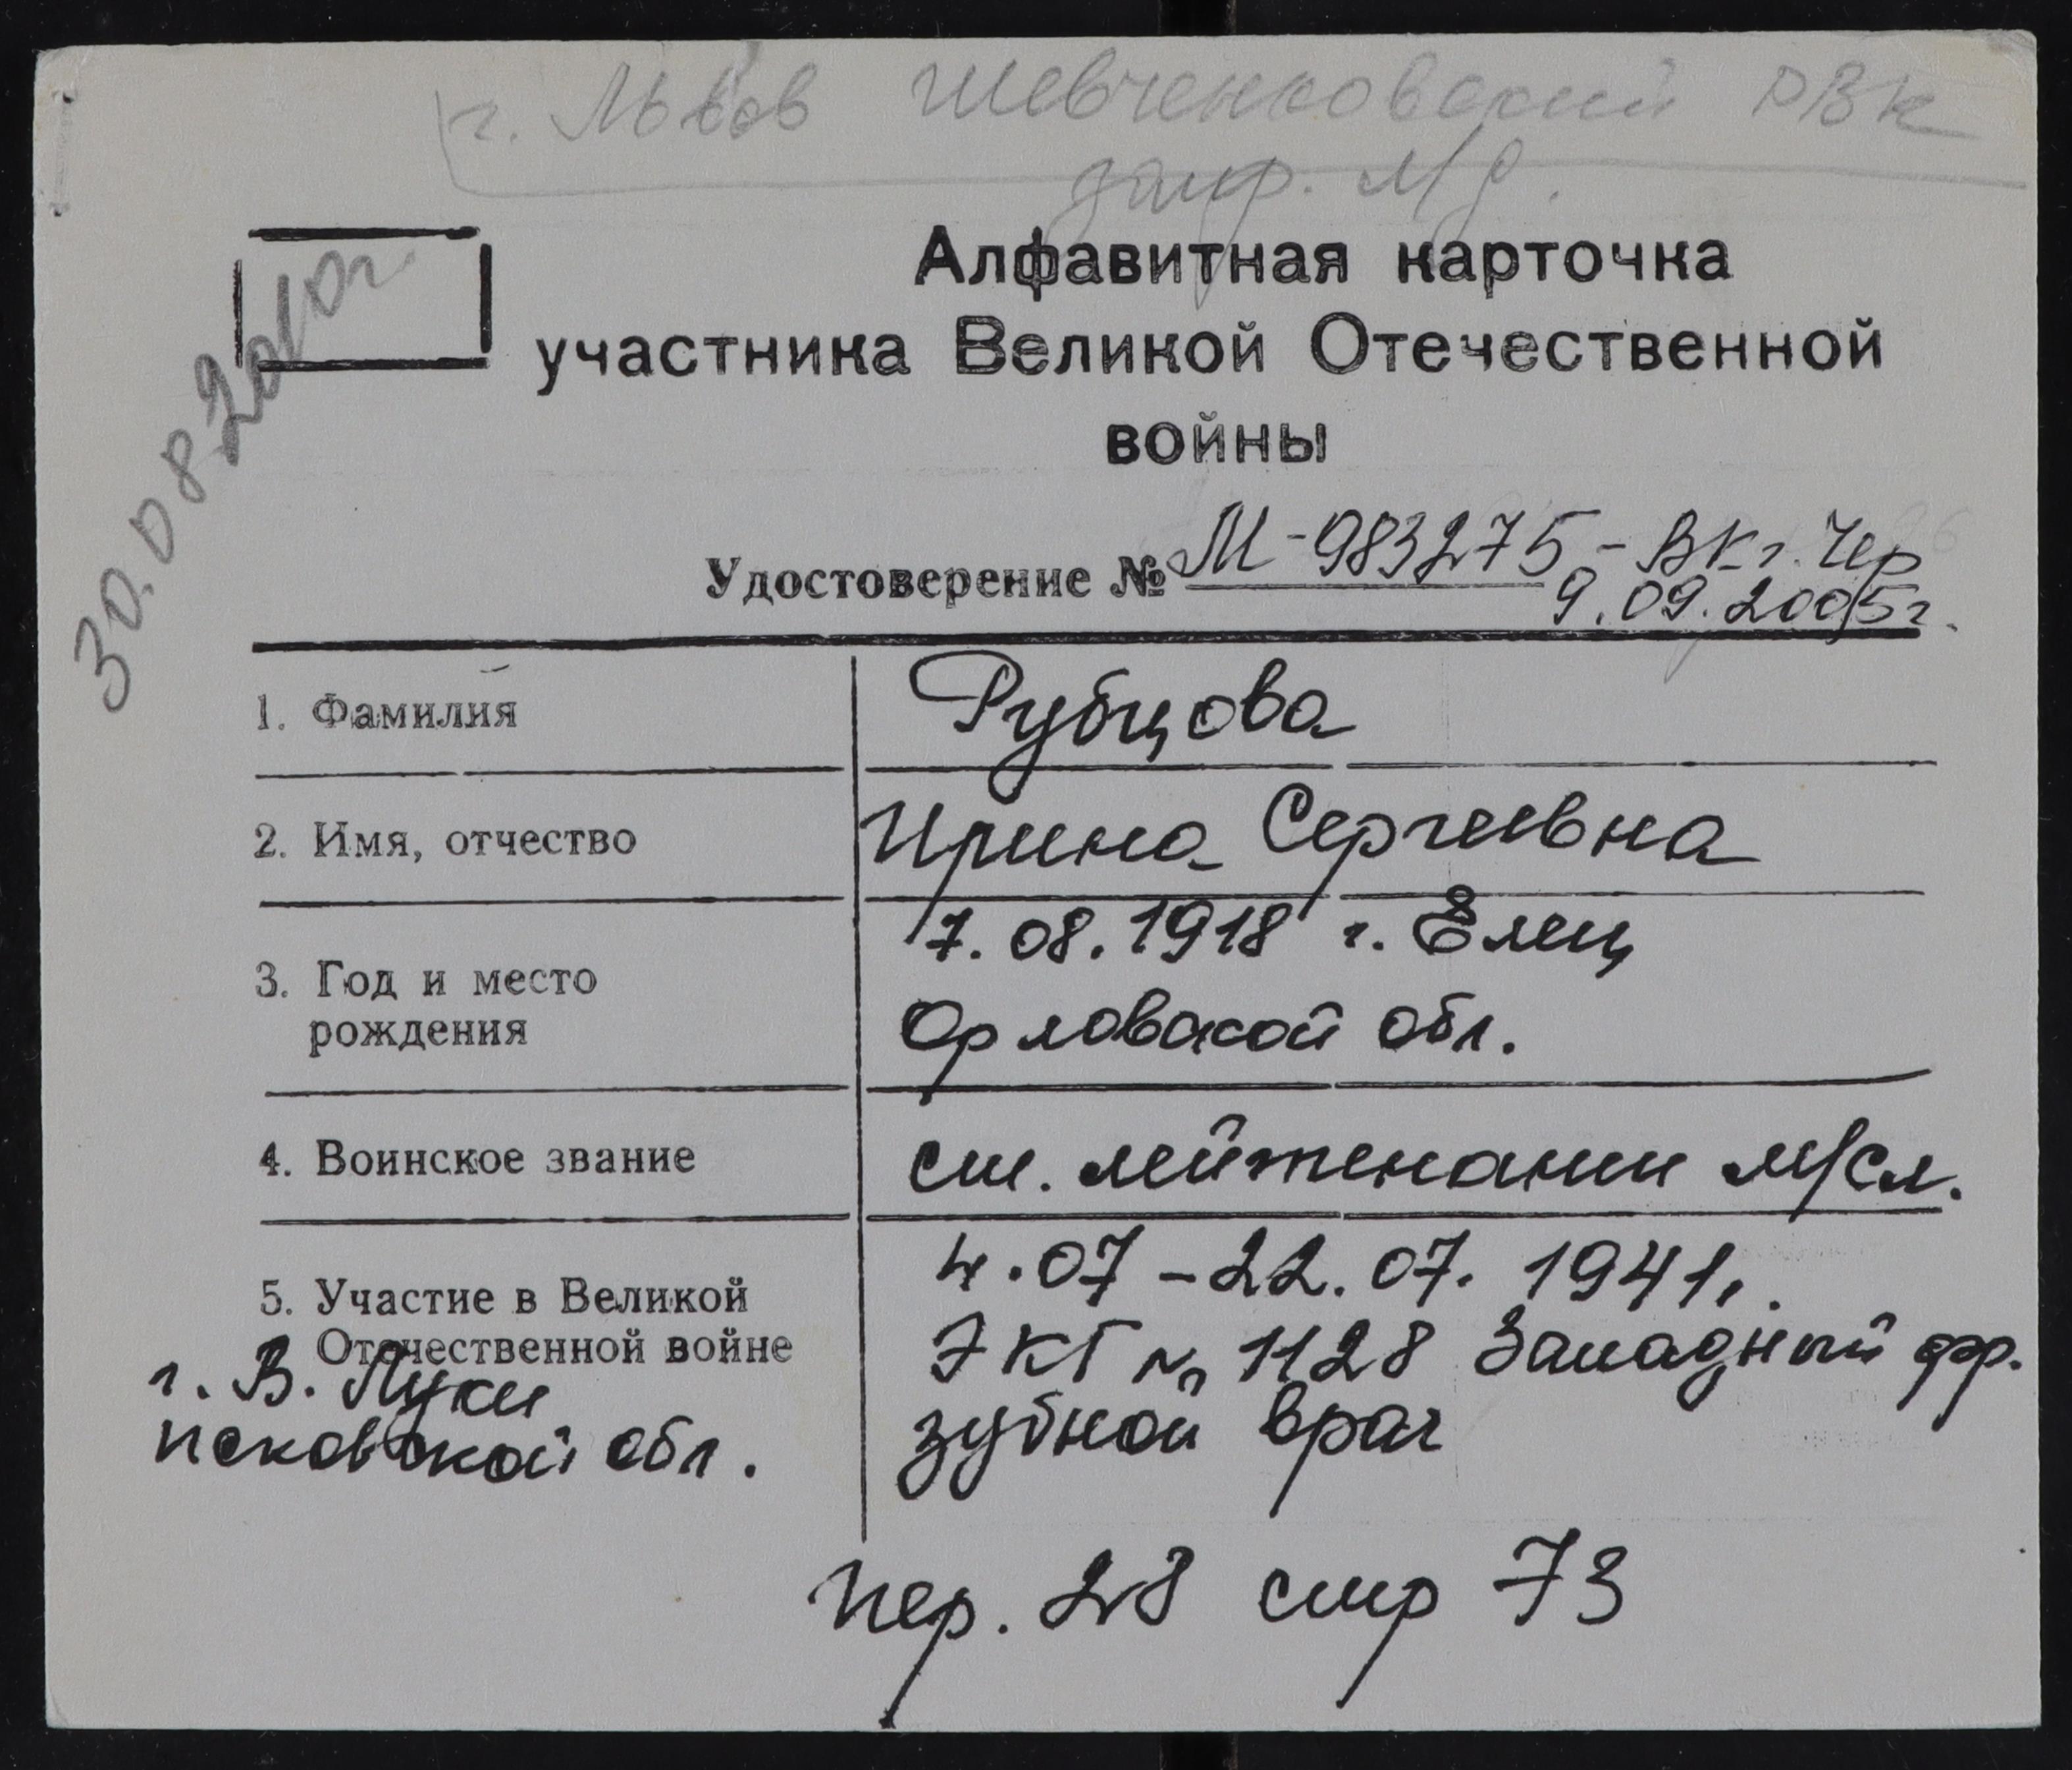 г. Львов Шевченковский РВК
запр. М/д.
30.08.2010г.
Алфавитная карточка
участника Великой Отечественной
войны
Удостоверение № М-983275 - ВК г. Чер
9.09.2005г.
1. Фамилия Рубцова
2. Имя, отчество Ирина Сергеевна
3. Год и место 7.08.1918 г. Елец
рождения Орловской обл.
4. Воинское звание ст. лейтенант м/сл.
5. Участие в Великой 4.07-22.07.1941.
Отечественной войне ЭКГ № 1128 Западный фр.
г. В. Луки зубной врач
Псковской обл.
пер. 28 стр 73